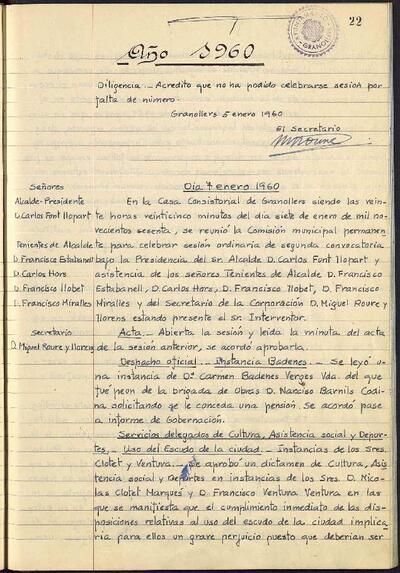 22
AYUNTAMIENTO GRANOLLERS
Año 1960
Diligencia - Acredito que no ha podido celebrarse sesión por
falta de número.
Granollers 5 enero 1960
El Secretario
Señores
Día 7 enero 1960
Alcalde-Presidente
En la Casa Consistorial de Granollers siendo las vein-
D. Carlos Font Llopart
te horas veinticinco minutos del día siete de enero de mil no-
vecientos sesenta, se reunió la Comisión municipal permanen-
Tenientes de Alcalde
te, para celebrar sesión ordinaria de segunda convocatoria
D. Francisco Estabanell
bajo la Presidencia del Sr. Alcalde D. Carlos Font Llopart y
D. Carlos Hors
asistencia de los señores Tenientes de Alcalde D. Francisco
D. Francisco Llobet
Estabanell, D. Carlos Hors, D. Francisco Llobet, D. Francisco
D. Francisco Miralles
Miralles y del Secretario de la Corporación D. Miguel Roure y
Llorens estando presente el Sr. Interventor.
Secretario
Acta.- Abierta la sesión y leída la minuta del acta
D. Miguel Roure y Llorens
de la sesión anterior, se acordó aprobarla.
Despacho oficial.- Instancia Badenes.- Se leyó u-
na instancia de Dª Carmen Badenes Verges Vda. del que
fué peon de la brigada de Obras D. Narciso Barnils Codi-
na solicitando se le conceda una pensión. Se acordó pase
a informe de Gobernación.
Servicios delegados de Cultura, Asistencia social y Depor-
tes.- Uso del Escudo de la ciudad.- Instancias de los Sres.
Clotet y Ventura.- Se aprobó un dictamen de Cultura, Asis
tencia social y Deportes en instancias de los Sres. D. Nico-
las Clotet Marques y D. Francisco Ventura Ventura en las
que se manifiesta que el cumplimiento inmediato de las dis-
posiciones relativas al uso del escudo de la ciudad implica-
ría para ellos un grave perjuicio puesto que deberían ser